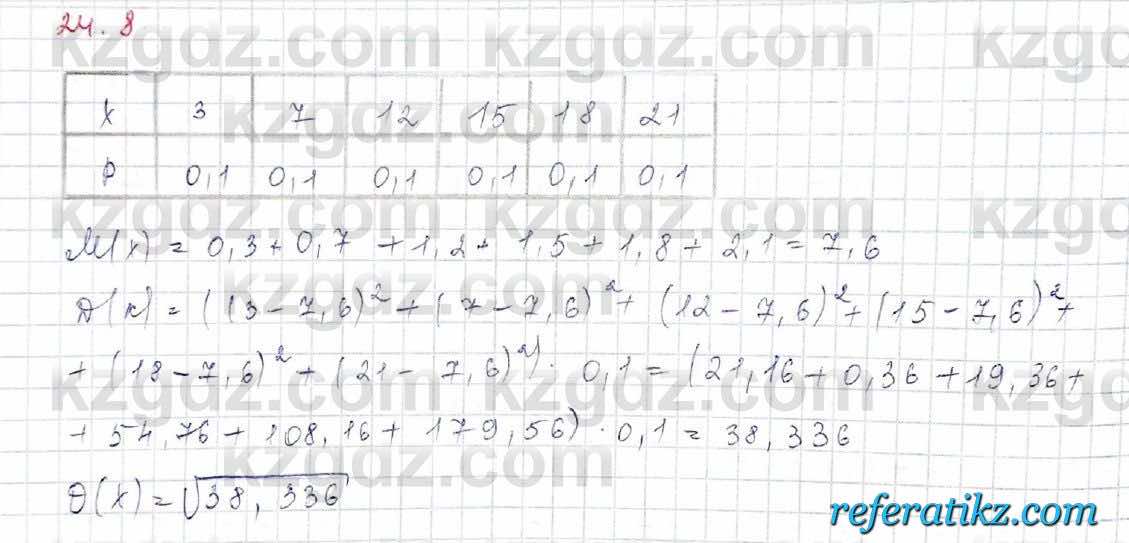 24.8
X 3 7 12 15 18 21
P 0,1 0,1 0,1 0,1 0,1 0,1
M(x) = 0,3 + 0,7 + 1,2 + 1,5 + 1,8 + 2,1 = 7,6
D(x) = ((3 - 7,6)² + (7 - 7,6)² + (12 - 7,6)² + (15 - 7,6)² +
+ (18 - 7,6)² + (21 - 7,6)²) · 0,1 = (21,16 + 0,36 + 19,36 +
+ 54,76 + 108,16 + 179,56) · 0,1 = 38,336
θ(X) = √38,336
kzgdz.com
referatikz.com